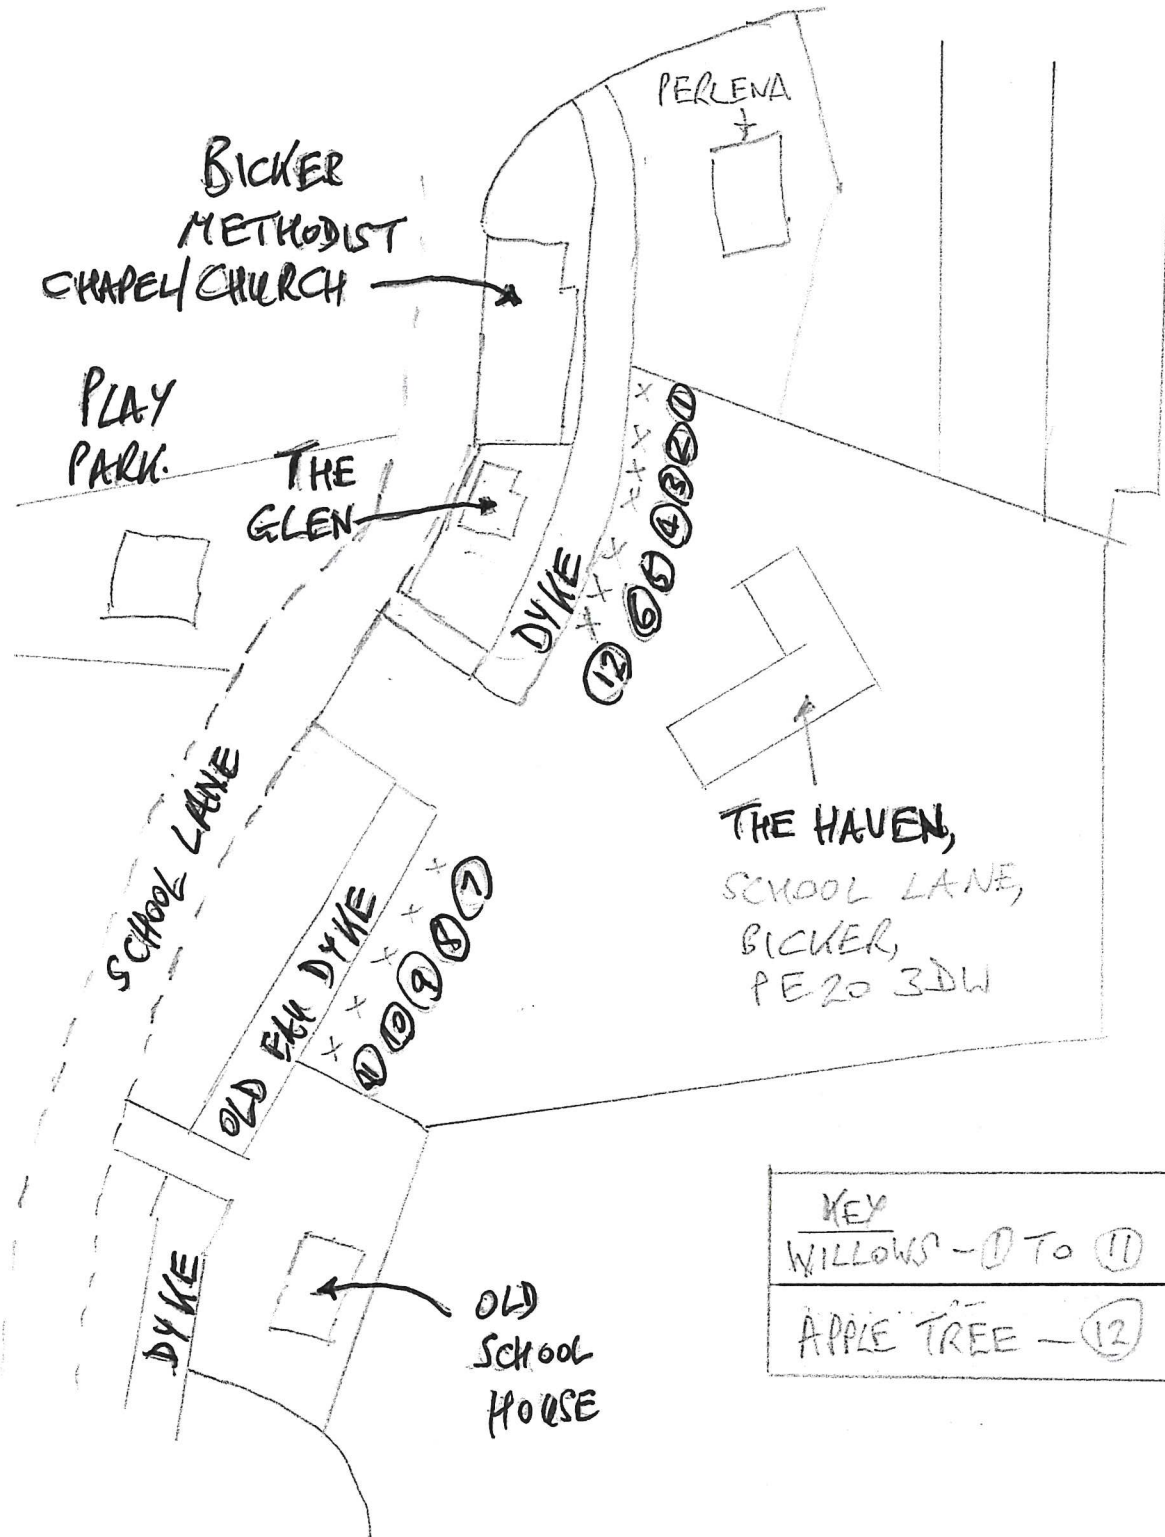 PERLENA
BICKER
METHODIST
CHAPEL/CHURCH
PLAY
PARK.
THE
GLEN
DYKE
1
2
3
4
5
6
12
THE HAVEN,
SCHOOL LANE,
BICKER,
PE20 3DW
SCHOOL LANE
OLD EAU DYKE
7
8
9
10
11
DYKE
OLD
SCHOOL
HOUSE
KEY
WILLOWS - 1 TO 11
APPLE TREE - 12